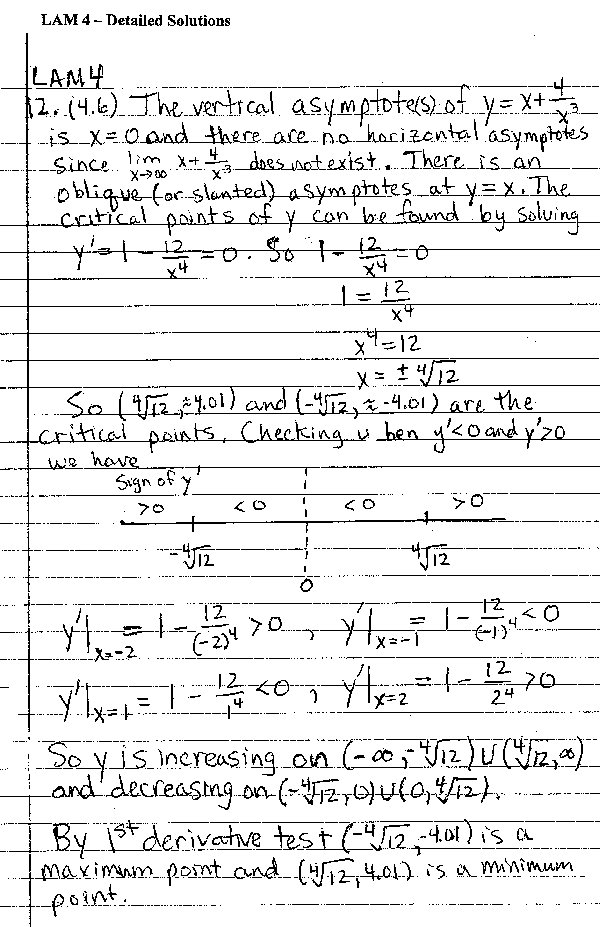 LAM 4 – Detailed Solutions
LAM 4
12. (4.6) The vertical asymptote(s) of y = x + 4/x³
is x = 0 and there are no horizontal asymptotes
since lim x→∞ x + 4/x³ does not exist. There is an
oblique (or slanted) asymptotes at y = x. The
critical points of y can be found by solving
y' = 1 - 12/x⁴ = 0. So 1 - 12/x⁴ = 0
1 = 12/x⁴
x⁴ = 12
x = ± ⁴√12
So (⁴√12, ≈4.01) and (-⁴√12, ≈ -4.01) are the
critical points. Checking when y'<0 and y'>0
we have
Sign of y'
>0 <0 <0 >0
-⁴√12 ⁴√12
0
y'|x=-2 = 1 - 12/(-2)⁴ > 0, y'|x=-1 = 1 - 12/(-1)⁴ < 0
y'|x=1 = 1 - 12/1⁴ < 0, y'|x=2 = 1 - 12/2⁴ > 0
So y is increasing on (-∞, -⁴√12) U (⁴√12, ∞)
and decreasing on (-⁴√12, 0) U (0, ⁴√12).
By 1st derivative test (-⁴√12, -4.01) is a
maximum point and (⁴√12, 4.01) is a minimum
point.